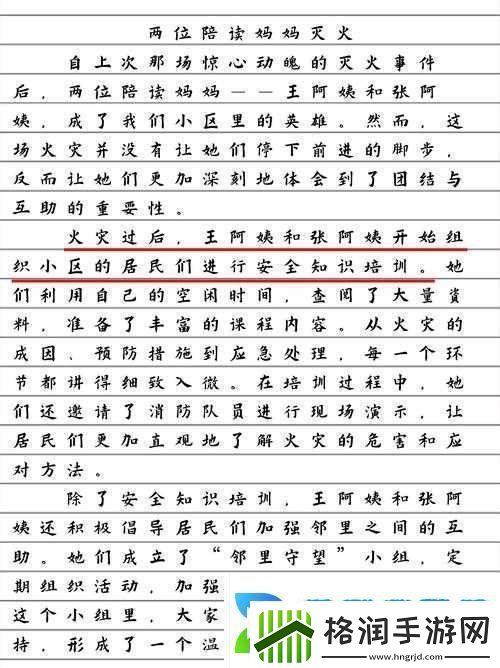 两位陪读妈妈灭火
自上次那场惊心动魄的灭火事件
后，两位陪读妈妈——王阿姨和张阿
姨，成了我们小区里的英雄。然而，这
场火灾并没有让她们停下前进的脚步，
反而让她们更加深刻地体会到了团结与
互助的重要性。
火灾过后，王阿姨和张阿姨开始组
织小区的居民们进行安全知识培训。她
们利用自己的空闲时间，查阅了大量资
料，准备了丰富的课程内容。从火灾的
成因、预防措施到应急处理，每一个环
节都讲得细致入微。在培训过程中，她
们还邀请了消防队员进行现场演示，让
居民们更加直观地了解火灾的危害和应
对方法。
除了安全知识培训，王阿姨和张阿
姨还积极倡导居民们加强邻里之间的互
助。她们成立了“邻里守望”小组，定
期组织活动，加强
这个小组里，大家
持，形成了一个温
格润手游网
www.hngrjd.com